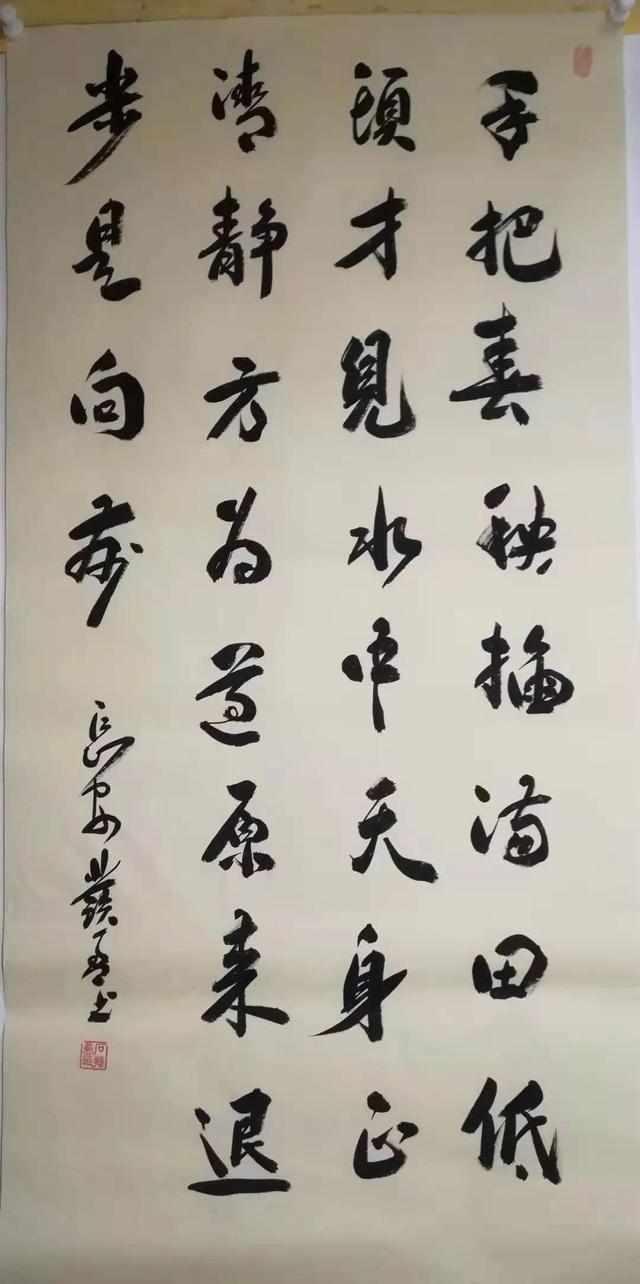 手把春秧插满田低
頭才見水中天身正
清静方为道原来退
步是向前
长安 书